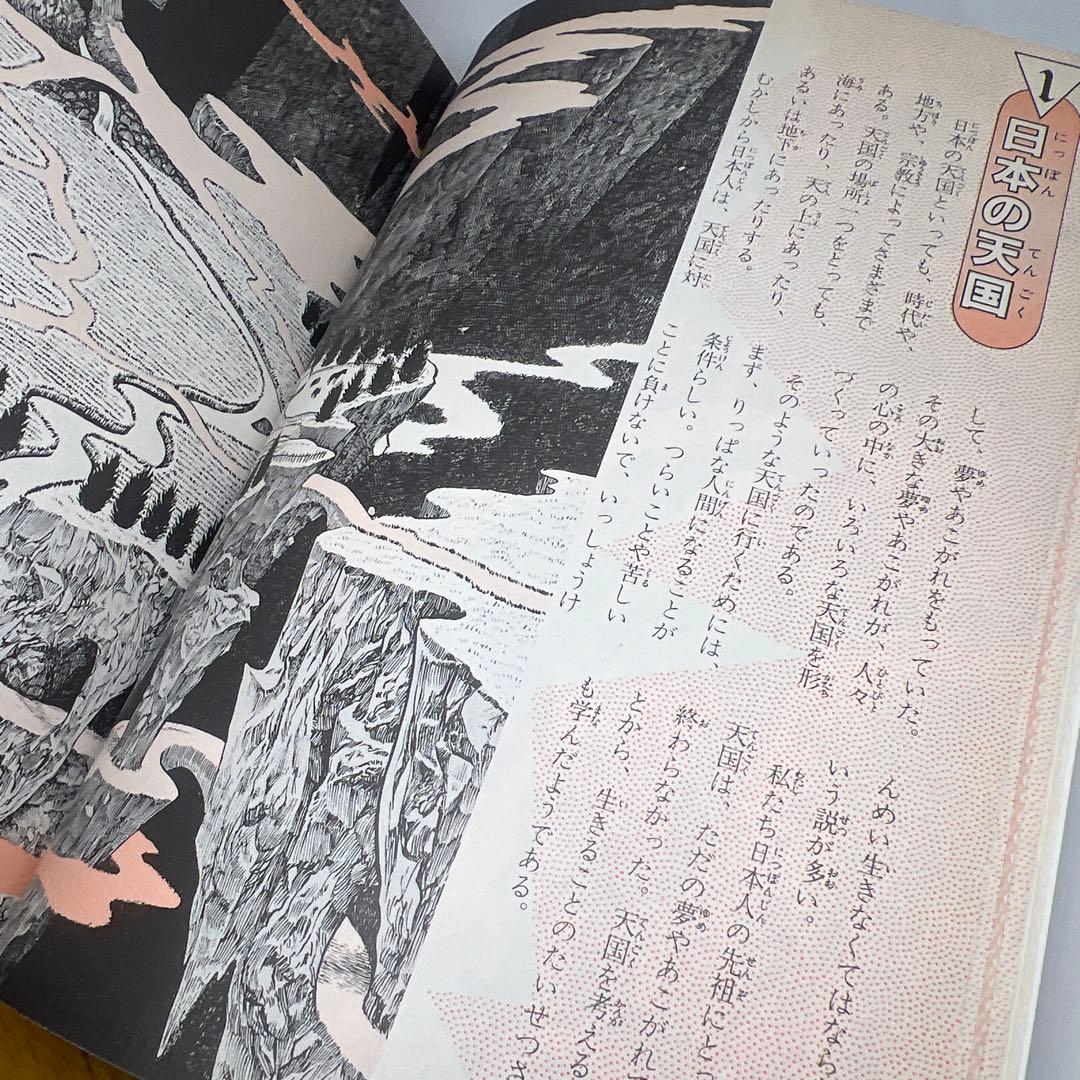 1
日本の天国
にっぽん てんごく
日本の天国といっても、時代や、
地方や、宗教によってさまざまで
ある。天国の場所一つをとっても、
海にあったり、天の上にあったり、
あるいは地下にあったりする。
むかしから日本人は、天国に対
して夢やあこがれをもっていた。
その大きな夢やあこがれが、人々
の心の中に、いろいろな天国を形
づくっていったのである。
そのような天国に行くためには、
まず、りっぱな人間になることが
条件らしい。つらいことや苦しい
ことに負けないで、いっしょうけ
んめい生きなくてはなら
いう説が多い。
私たち日本人の先祖にとっ
天国は、ただの夢やあこがれ
終わらなかった。天国を考える
とから、生きることのたいせつさ
も学んだようである。